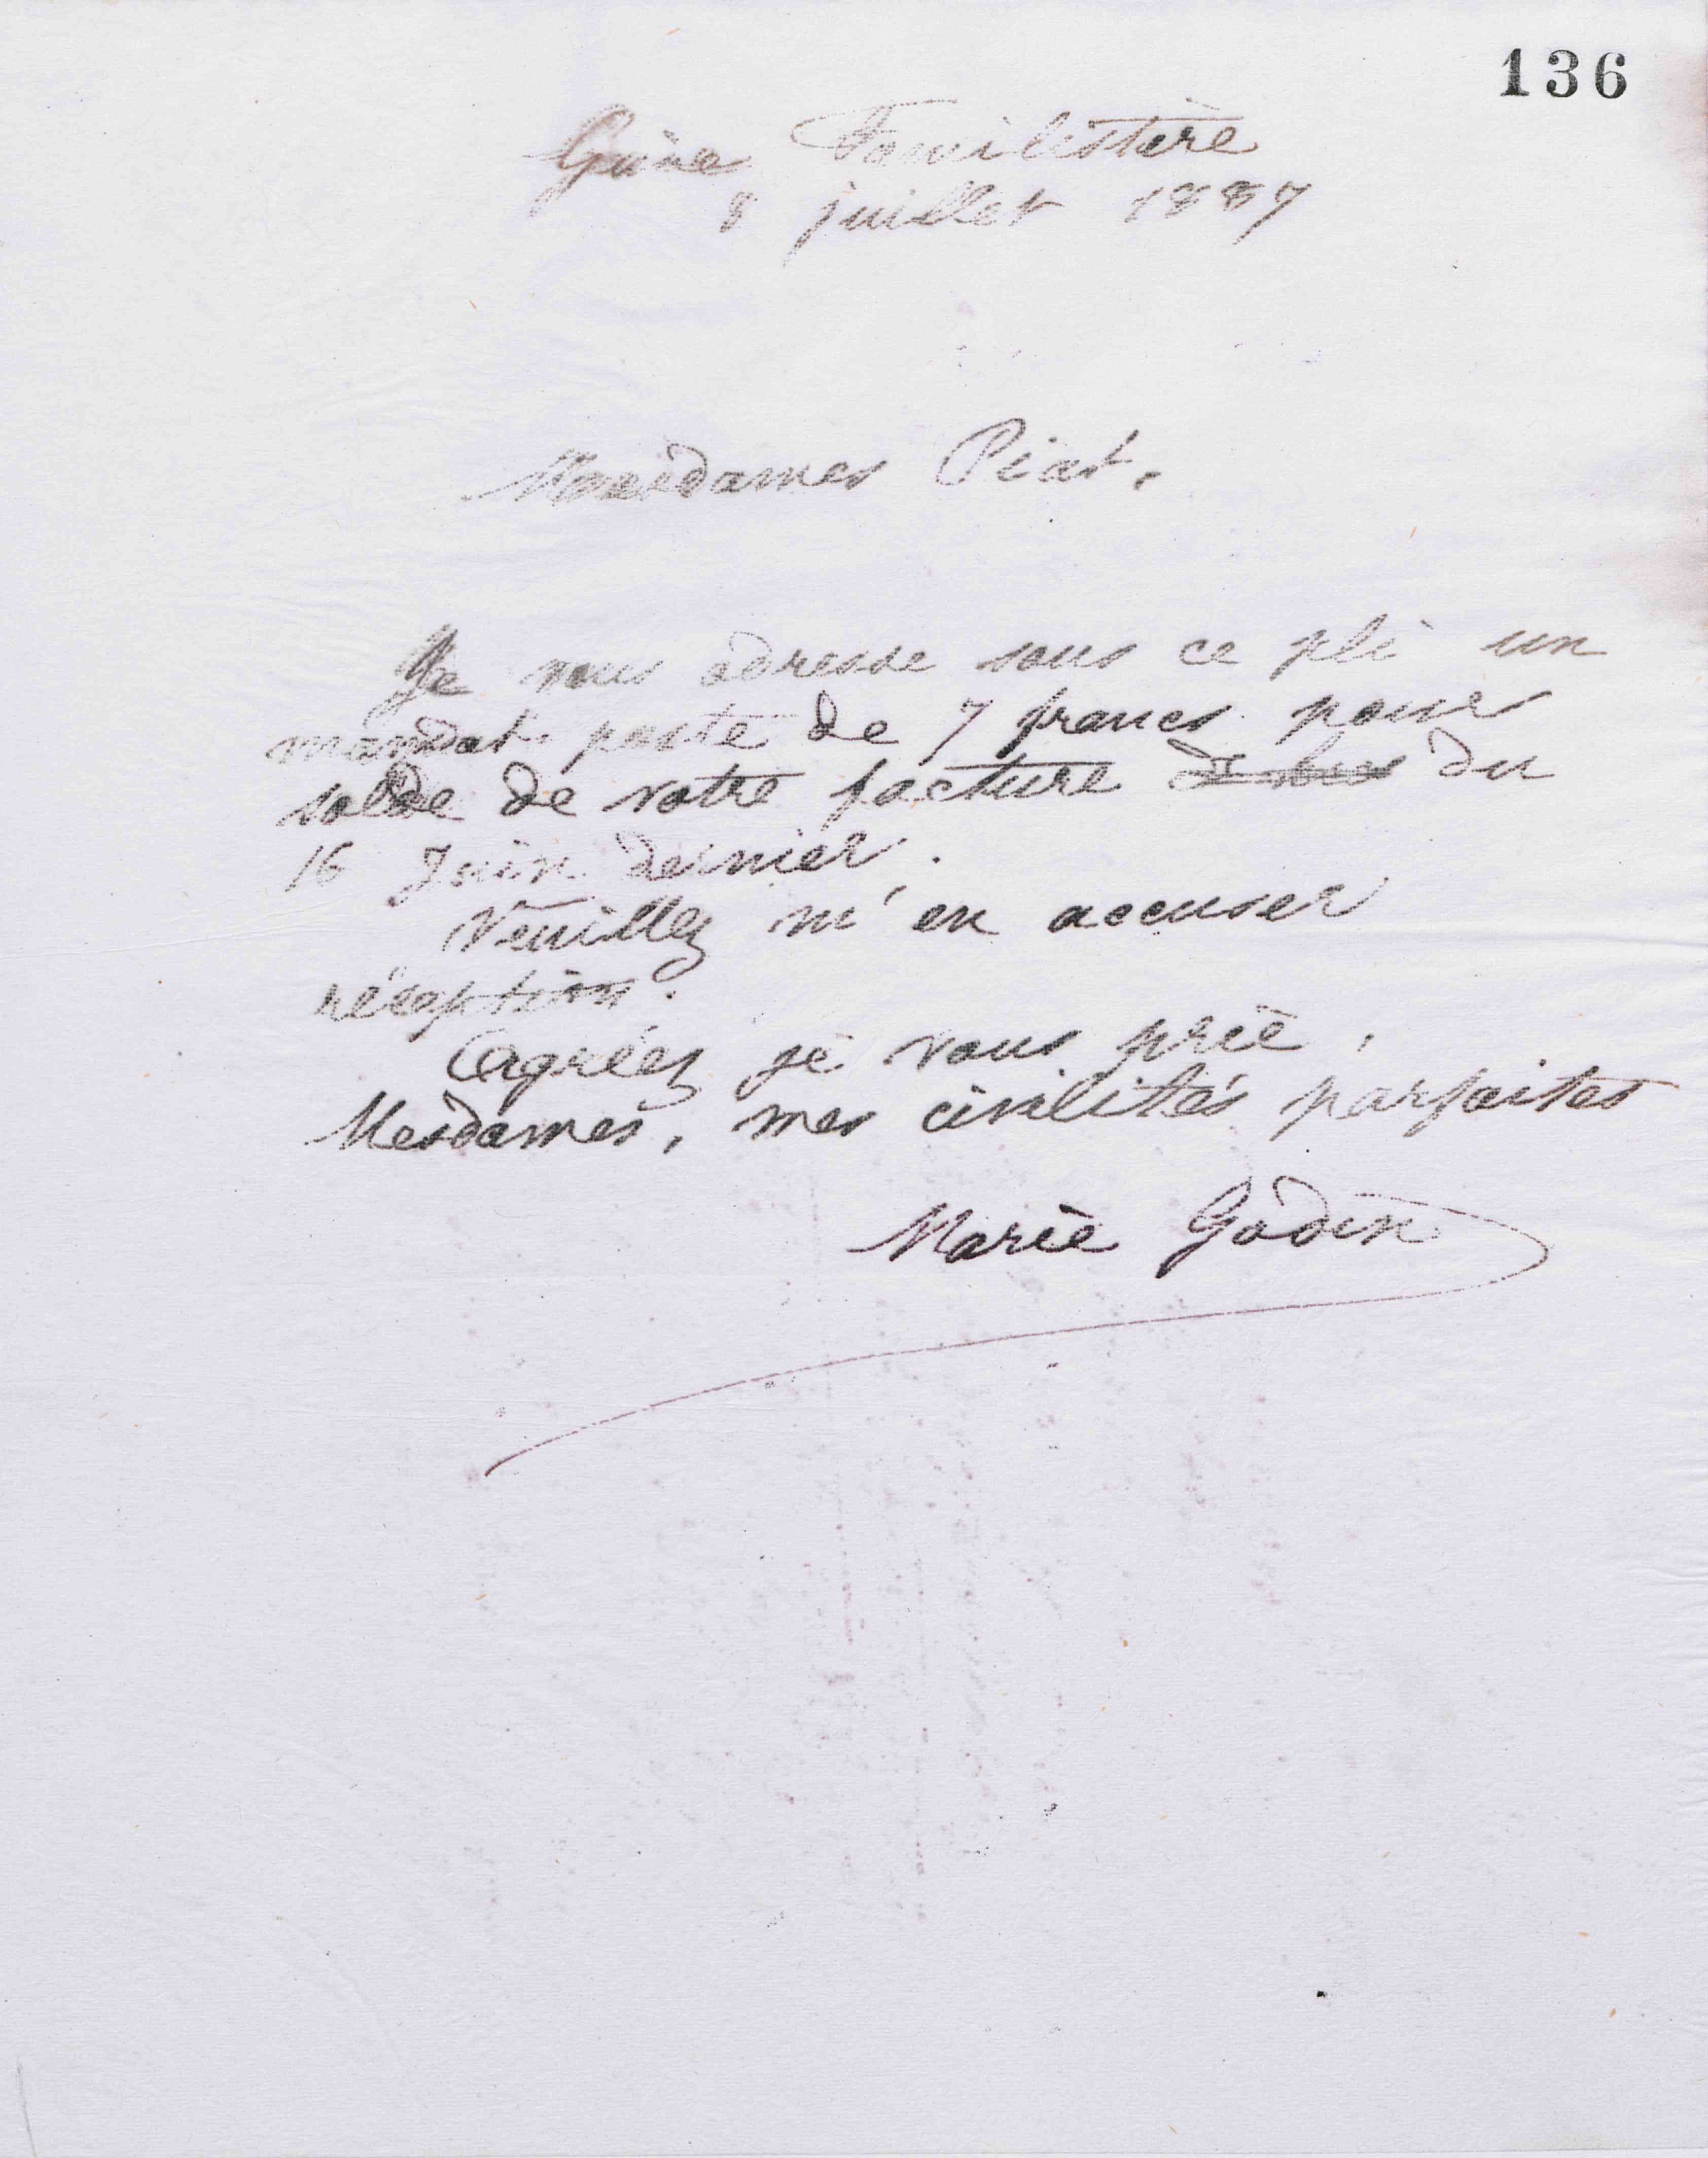 136
Guise Familistère
8 juillet 1887
Mesdames Piat,
Je vous adresse sous ce pli un
mandat poste de 7 francs pour
solde de votre facture du
16 Juin dernier.
Veuillez m'en accuser
réception.
Agréez je vous prie,
Mesdames, mes civilités parfaites
Marie Godin